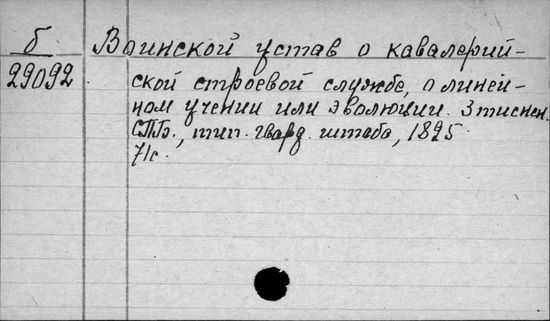 б
29092
Воинской устав о кавалерий-
ской строевой службе, о линей-
ном учении или эволюции. 3 тиснен.
СПб., тип. гвард. штаба, 1825.
71с.